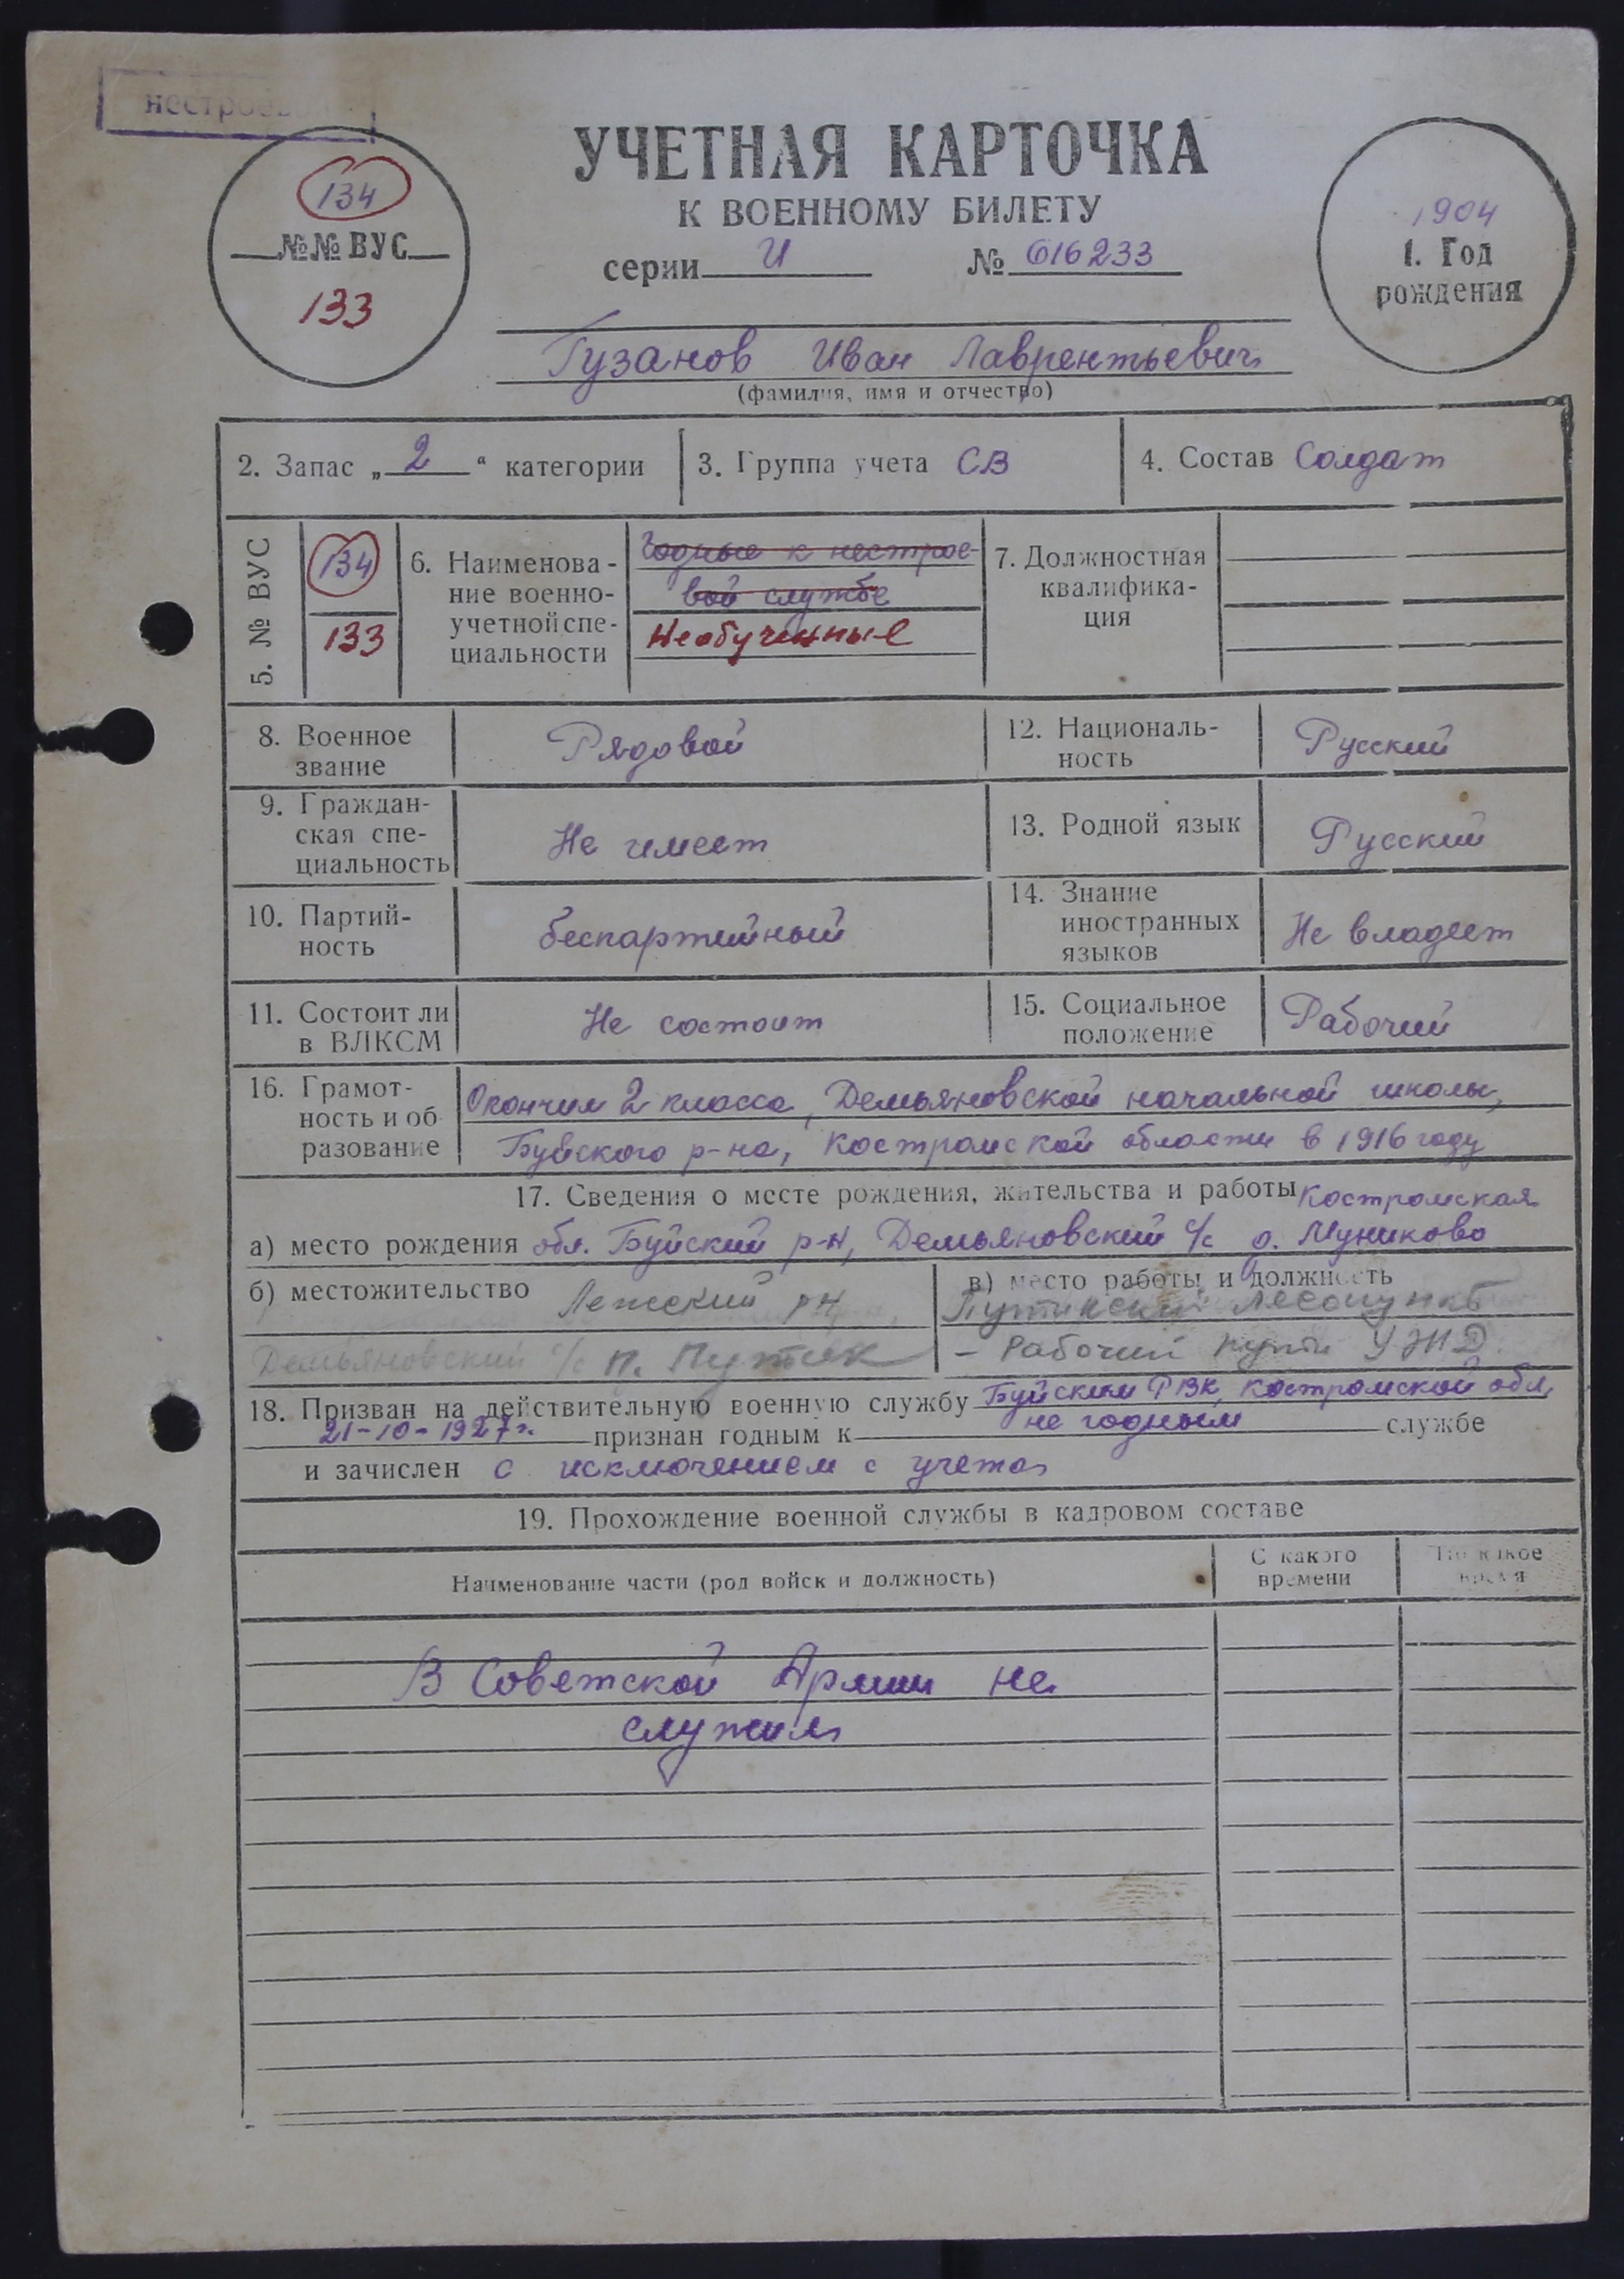 134
№№ ВУС
133
УЧЕТНАЯ КАРТОЧКА
К ВОЕННОМУ БИЛЕТУ
серии И № 616233
1904
1. Год
рождения
Гузанов Иван Лаврентьевич
(фамилия, имя и отчество)
2. Запас „ 2 “ категории
3. Группа учета СВ
4. Состав Солдат
5. № ВУС
134
133
6. Наименова-
ние военно-
учетной спе-
циальности
Годные к нестрое-
вой службе
Необученные
7. Должностная
квалифика-
ция
8. Военное
звание
Рядовой
12. Националь-
ность
Русский
9. Граждан-
ская спе-
циальность
Не имеет
13. Родной язык
Русский
10. Партий-
ность
беспартийный
14. Знание
иностранных
языков
Не владеет
11. Состоит ли
в ВЛКСМ
Не состоит
15. Социальное
положение
Рабочий
16. Грамот-
ность и об-
разование
Окончил 2 класса, Демьяновской начальной школы,
Буйского р-на, Костромской области в 1916 году
17. Сведения о месте рождения, жительства и работы Костромская
а) место рождения обл. Буйский р-н, Демьяновский с/с д. Муниково
б) местожительство Лежский р-н
Демьяновский с/с п. Путик
в) место работы и должность
Лесопункт
- Рабочий пути УЖД
18. Призван на действительную военную службу Буйским РВК, Костромской обл,
21-10-1927г. признан годным к не годным службе
и зачислен с исключением с учета
19. Прохождение военной службы в кадровом составе
Наименование части (род войск и должность)
С какого
времени
По какое
время
В Советской Армии не
служил